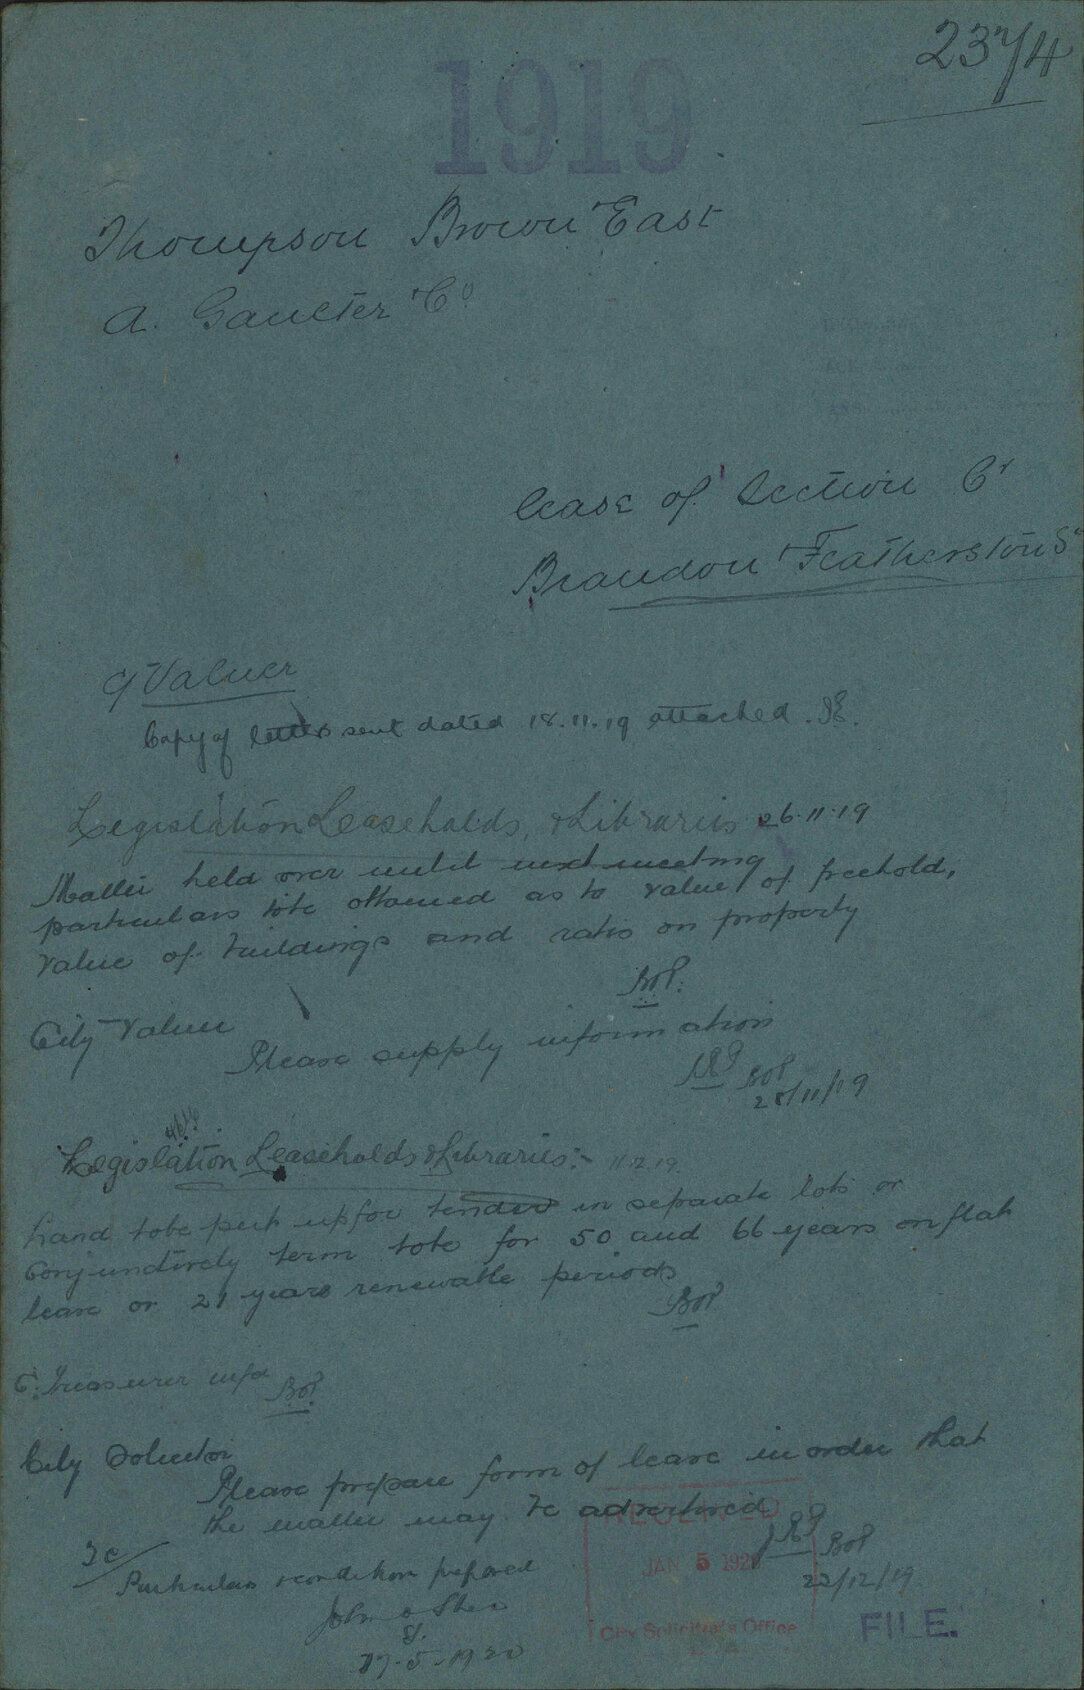 23/4
1919
Thompson Brown & East
A. Gaulter & Co
lease of Section Cr
Brandon & Featherston Sts
C/Valuer
Copy of letter sent dated 18.11.19 attached.
Legislation Leaseholds, & Libraries 26.11.19
Matter held over until next meeting
particulars to be obtained as to value of freehold,
value of buildings and rates on property
City Valuer
Please supply information
28/11/19
Legislation Leaseholds & Libraries:- 11.12.19.
Land to be put up for tender in separate lots or
conjunctively term to be for 50 and 66 years on flat
lease or 21 years renewable periods
C. Treasurer infd
City Solicitor
Please prepare form of lease in order that
the matter may be advertised
22/12/19
RECEIVED
JAN 5 1920
City Solicitor's Office
TC/
Particulars & conditions prepared
John O'Shea
17-5-1920
FILE.